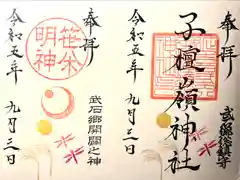 奉拝
子檀嶺神社
武石總鎮守
令和五年
九月三日
奉拝
笹焼明神
武石郷開闢之神
令和五年
九月三日